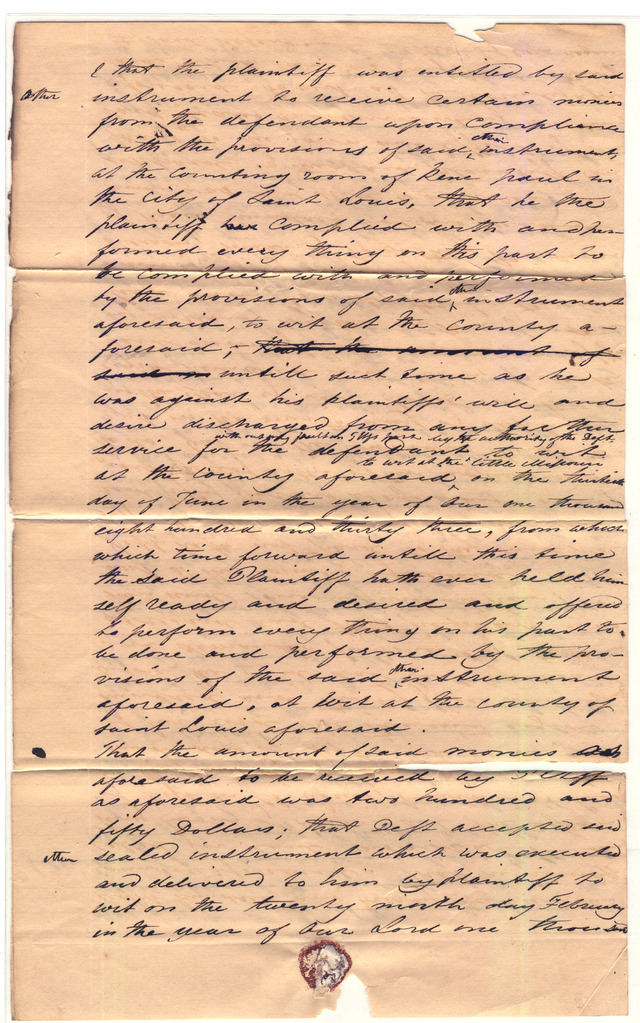 & that the plaintiff was entitled by said
other
instrument to receive certain monies
from the defendant upon compliance
with the provisions of said other instrument,
at the counting room of Rene paul in
the city of Saint Louis, that he the
plaintiff has complied with and per-
formed every thing on this part to
be complied with and performed
by the provisions of said other instrument
aforesaid, to wit at the County a-
foresaid, that the amount of
said m untill such time as he
was against his plaintiffs' will and
desire discharged from any further
with out any fault on Ptffs part by the authority of the Deft.
service for the defendant to wit
to wit at the little Missouri
at the County aforesaid on the thirtieth
day of June in the year of our one thousand
eight hundred and thirty three, from which
which time forward untill this time
the said Plaintiff hath ever held him
self ready and desired and offered
to perform every thing on his part to
be done and performed by the pro-
visions of the said other instrument
aforesaid, at wit at the county of
saint Louis aforesaid.
That the amount of said monies
aforesaid to be received by Ptiff
as aforesaid was two hundred and
fifty Dollars; that Deft accepted said
other
sealed instrument which was executed
and delivered to him by plaintiff to
wit on the twenty ninth day February
in the year of our Lord one thousand